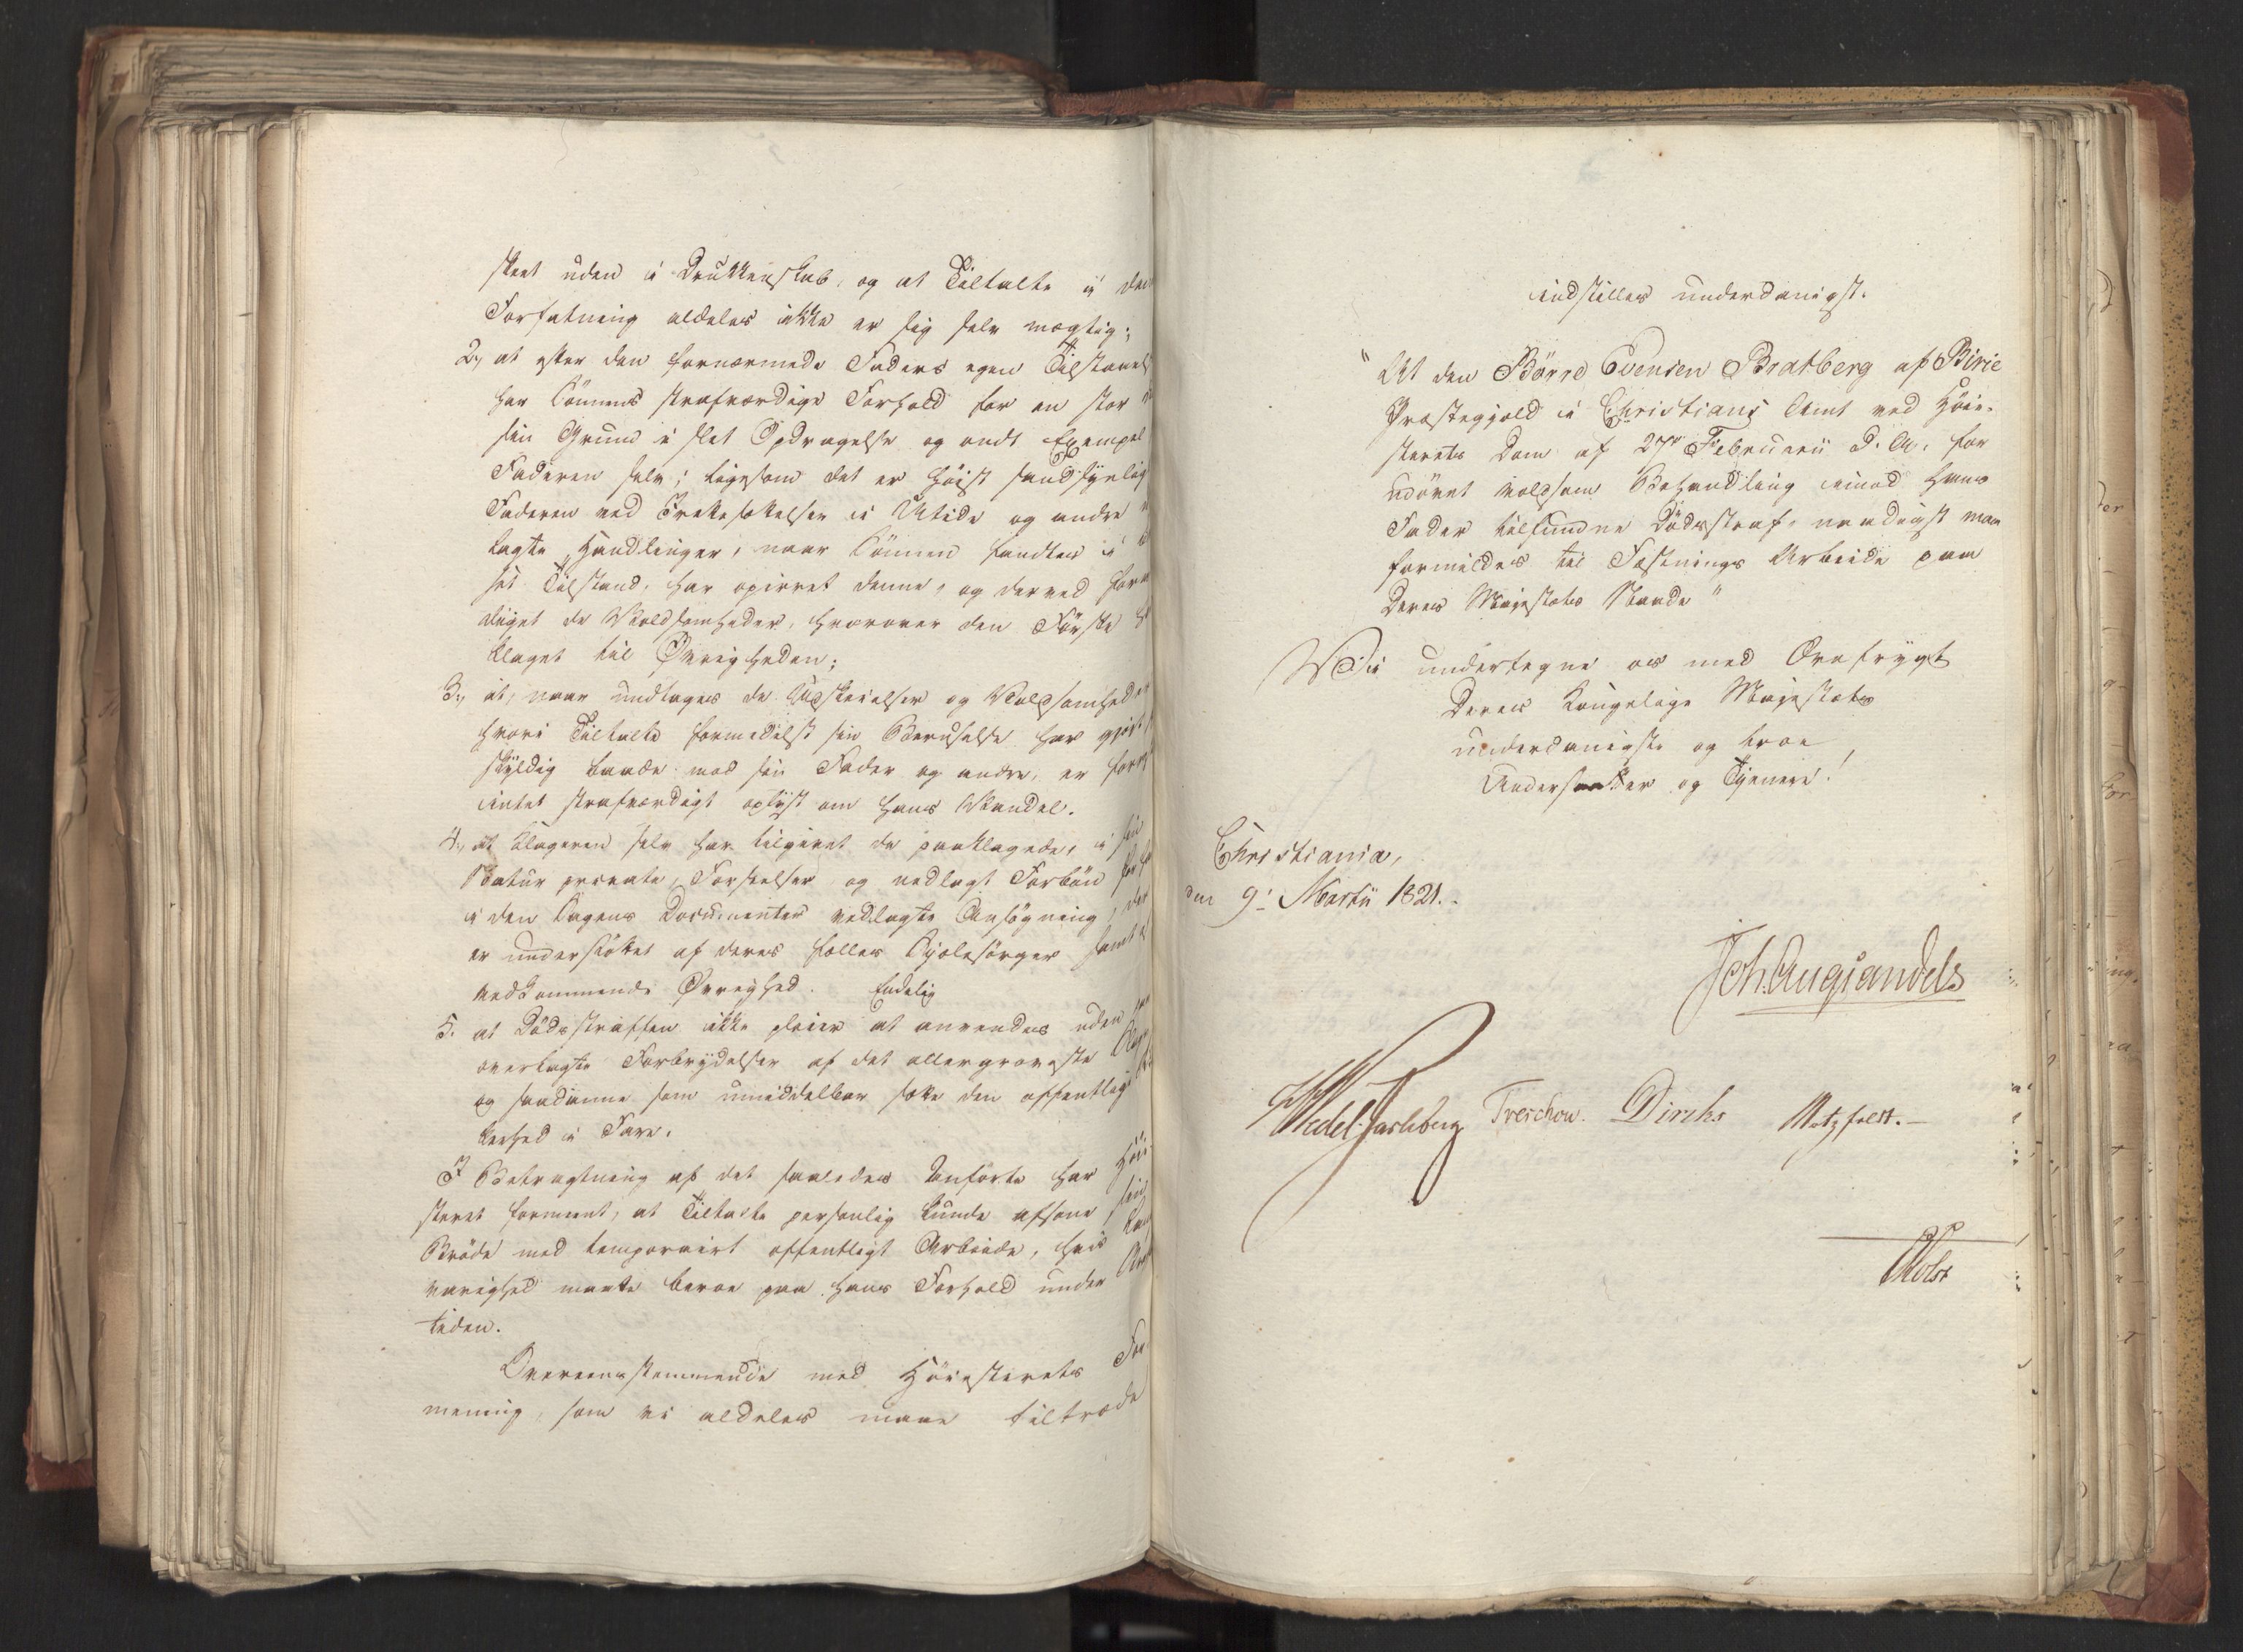 skeet uden i Drukkenskab, og at Tiltalte i den
Forfatning aldeles ikke er sig selv mægtig;
2, at efter den fornærmede Faders egen Tilstaaels
har Sönnens strafværdige Forhold for en stor
sin Grund i slet Opdragelse og ondt Exempel
Faderen selv; ligesom det er höist sandsynlig
Faderen ved Irettesættelser i Utide og andre
lagte Handlinger, naar Sönnen fandtes i
set Tilstand, har opirret denne, og derved for
diget de Voldsomheder, hvorover den Förste
klaget til Øvrigheden;
3, at, naar undtages de Udskeielser og Voldsomheder
hvori Tiltalte formedelst sin Beruselse har gjort
skyldig baade mod sin Fader og andre, er
intet strafværdigt oplyst om hans Vandel.
4, at Klageren selv har tilgivet de paaklagede, i sin
Natur private, Forseelser og nedlagt Forbön
i den Sagens Documenter vedlagte Ansögning, der
er understöttet af deres fælles Sjælesörger samt
vedkommende Øvrighed. Endelig
5. at Dödsstraffen ikke pleier at anvendes uden
overlagte Forbrydelser af det allergroveste
og saadanne som umiddelbar sætte den offentlige
kerhed i Fare.
I Betragtning af det saaledes Anförte har Höie-
steret formeent, at Tiltalte personlig kunde afsone sin
Bröde med temporairt offentligt Arbeide, hvis
varighed maatte beroe paa hans Forhold under
tiden.
Overeensstemmende med Höiesterets For
mening, som vi aldeles maae tiltræde
indstilles underdanigst.
"At den Börre Evensen Bratberg af Birie
Præstegjeld i Christians Amt ved Höie-
sterets Dom af 27de Februarii d. A. for
udövet voldsom Behandling imod hans
Fader tilfundne Dödsstraf, naadigst maa
formildes til Fæstnings Arbeide paa
Deres Majestæts Naade"
Vi undertegne os med Ærefrygt
Deres Kongelige Majestæts
underdanigste og troe
Undersaatter og Tjenere!
Christiania,
den 9' Martii 1821.
Joh. Aug Sandels
Wedel Jarlsberg Treschow. Diriks Motzfeldt.
Holst